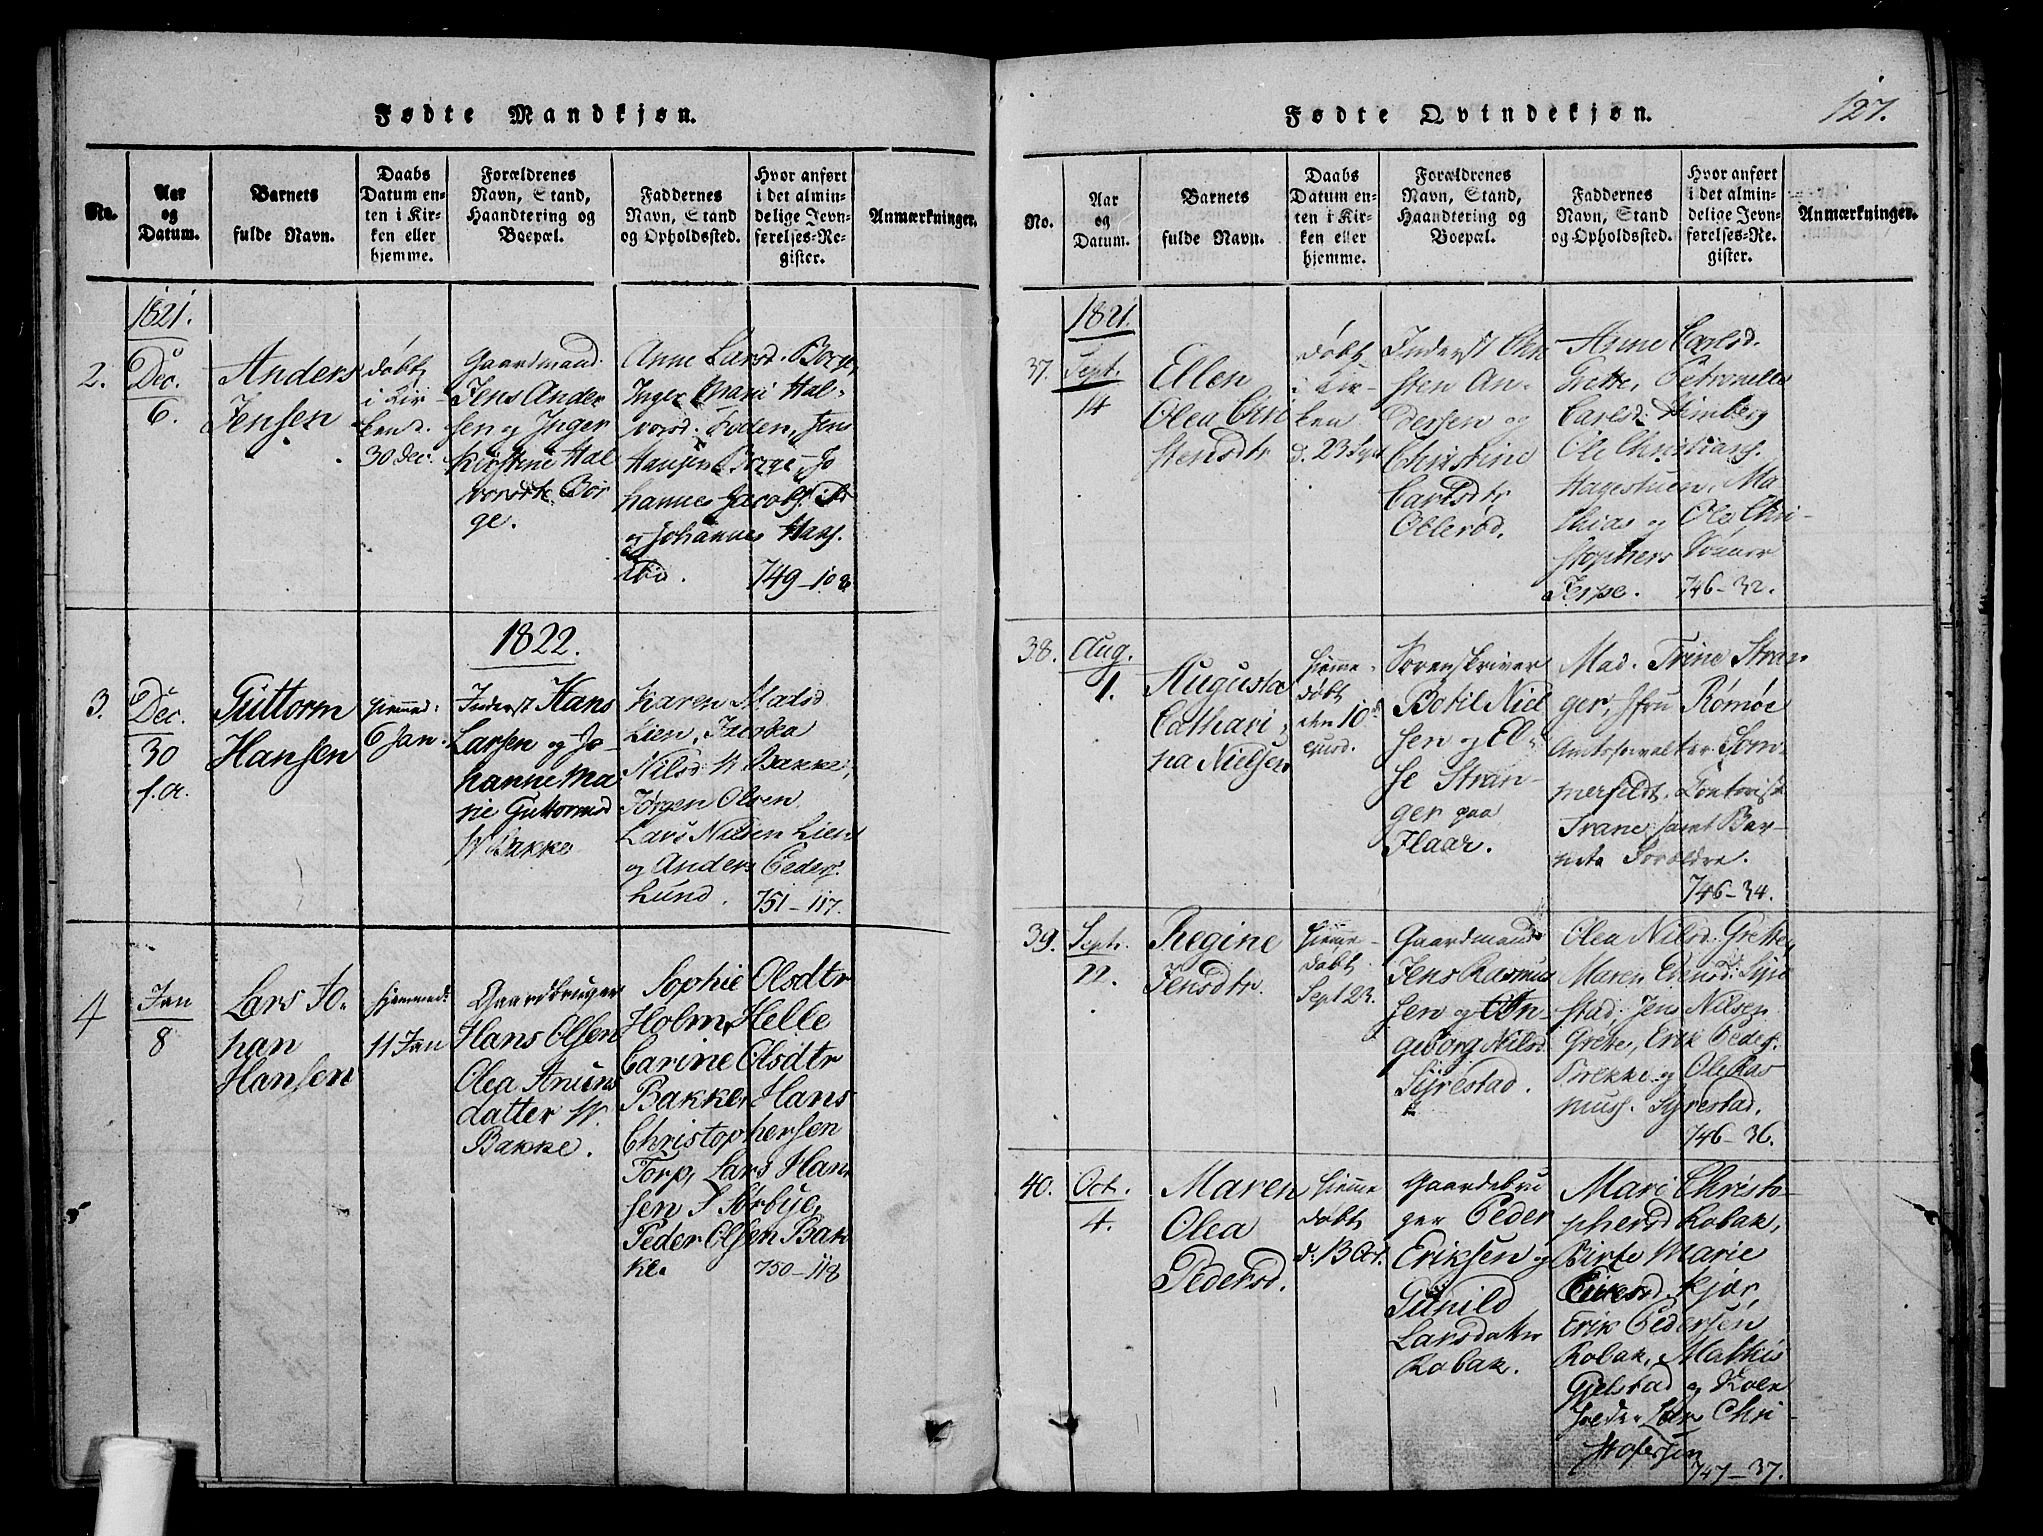 Fødte Mandkjøn.
No.
Aar
og
Datum.
Barnets
fulde Navn.
Daabs
Datum en-
ten i Kir-
ken eller
hjemme.
Forældrenes
Navn, Stand,
Haandtering og
Boepæl.
Faddernes
Navn, Stand
og Opholdssted.
Hvor anført
i det almin-
delige Jevn-
førelses-Re-
gister.
Anmærkninger.
1821.
2.
Dec.
6.
Anders
Jensen
døbt
i Kir-
ken d.
30 Dec.
Gaardmand
Jens Ander
sen og Inger
Kirstine Hal
vorsdtr. Bor
ge.
Anne Larsd. Borge,
Inger Mari Hal-
vorsd. Foden, Jens
Hansen Borge, Jo
hannes Jacobs.
og Johannes Hans.
ibid.
749-108
1822.
3.
Dec.
30
f. a.
Guttorm
Hansen
hjemmed.
6 Jan.
Inderst Hans
Larsen og Jo-
hanne Ma
rie Guttormsd
N Bakke
Karen Madsd
Lien,
Nilsd. N Bakke,
Jørgen Olsen
Lars Nilsen Lien
og Anders Peders.
Lund.
751-117.
4
Jan
8
Lars Jo-
han
Hansen
hjemmed.
11 Jan
Gaardbruger
Hans Olsen
Olea Amuns
datter N.
Bakke.
Sophie Olsdtr
Holm, Helle
Carine Olsdtr
Bakke, Hans
Christophersen
Torp, Lars Han
sen S Sørbye,
Peder Olsen Bak
ke.
750-118
Fødte Qvindekjøn.
127.
No.
Aar
og
Datum.
Barnets
fulde Navn.
Daabs
Datum en-
ten i Kir-
ken eller
hjemme.
Forældrenes
Navn, Stand,
Haandtering og
Boepæl.
Faddernes
Navn, Stand
og Opholdssted.
Hvor anført
i det almin-
delige Jevn-
førelses-Re-
gister.
Anmærkninger.
1821.
37.
Sept.
14
Ellen
Olea Cri
stensdtr
døbt
i Kir-
ken
d. 23 Sept
Inderst Chri
sten An-
dersen og
Christine
Carlsdtr
Ollerød.
Anne Carlsd.
Grette, Petronelle
Carlsd.
Ole Christians.
Hagestuen, Ma
thias og Ole Chri-
stophers Sønner
Jerpe.
746-32.
38.
Aug.
1.
Augusta
Cathari-
na Nielsen
hjemme-
døbt
den 10de
ejusd.
Sorenskriver
Botil Niel
sen og El-
se Stran-
ger paa
Flaar.
Mad. Trine Stran-
ger, Jfru Rømøe
Amtsforvalter Som-
merfeldt,
Trane samt Bar-
nets Forældre.
746-34.
39.
Sept.
22.
Regine
Jensdtr.
hjemme-
døbt
Sept 23.
Gaardmand
Jens Rasmus
sen og In-
geborg Nilsd.
Syrestad.
Olea Nilsd. Grette,
Maren Syre
stad, Jens Nilsen
Grette, Erik Peders.
Brekke og Ole Ras
muss. Syrestad.
746-36.
40.
Oct.
4.
Maren
Olea
Pedersd.
hjemme
døbt
d. 13 Oct.
Gaardebru
ger Peder
Eriksen og
Gunild
Larsdatter
Robak.
Mari Christo-
phersd Robak,
Birte Marie
Eriksd. Kjær,
Erik Pedersen
Robak, Mathis
Gjelstad og
Chri-
stofersen
747-37.